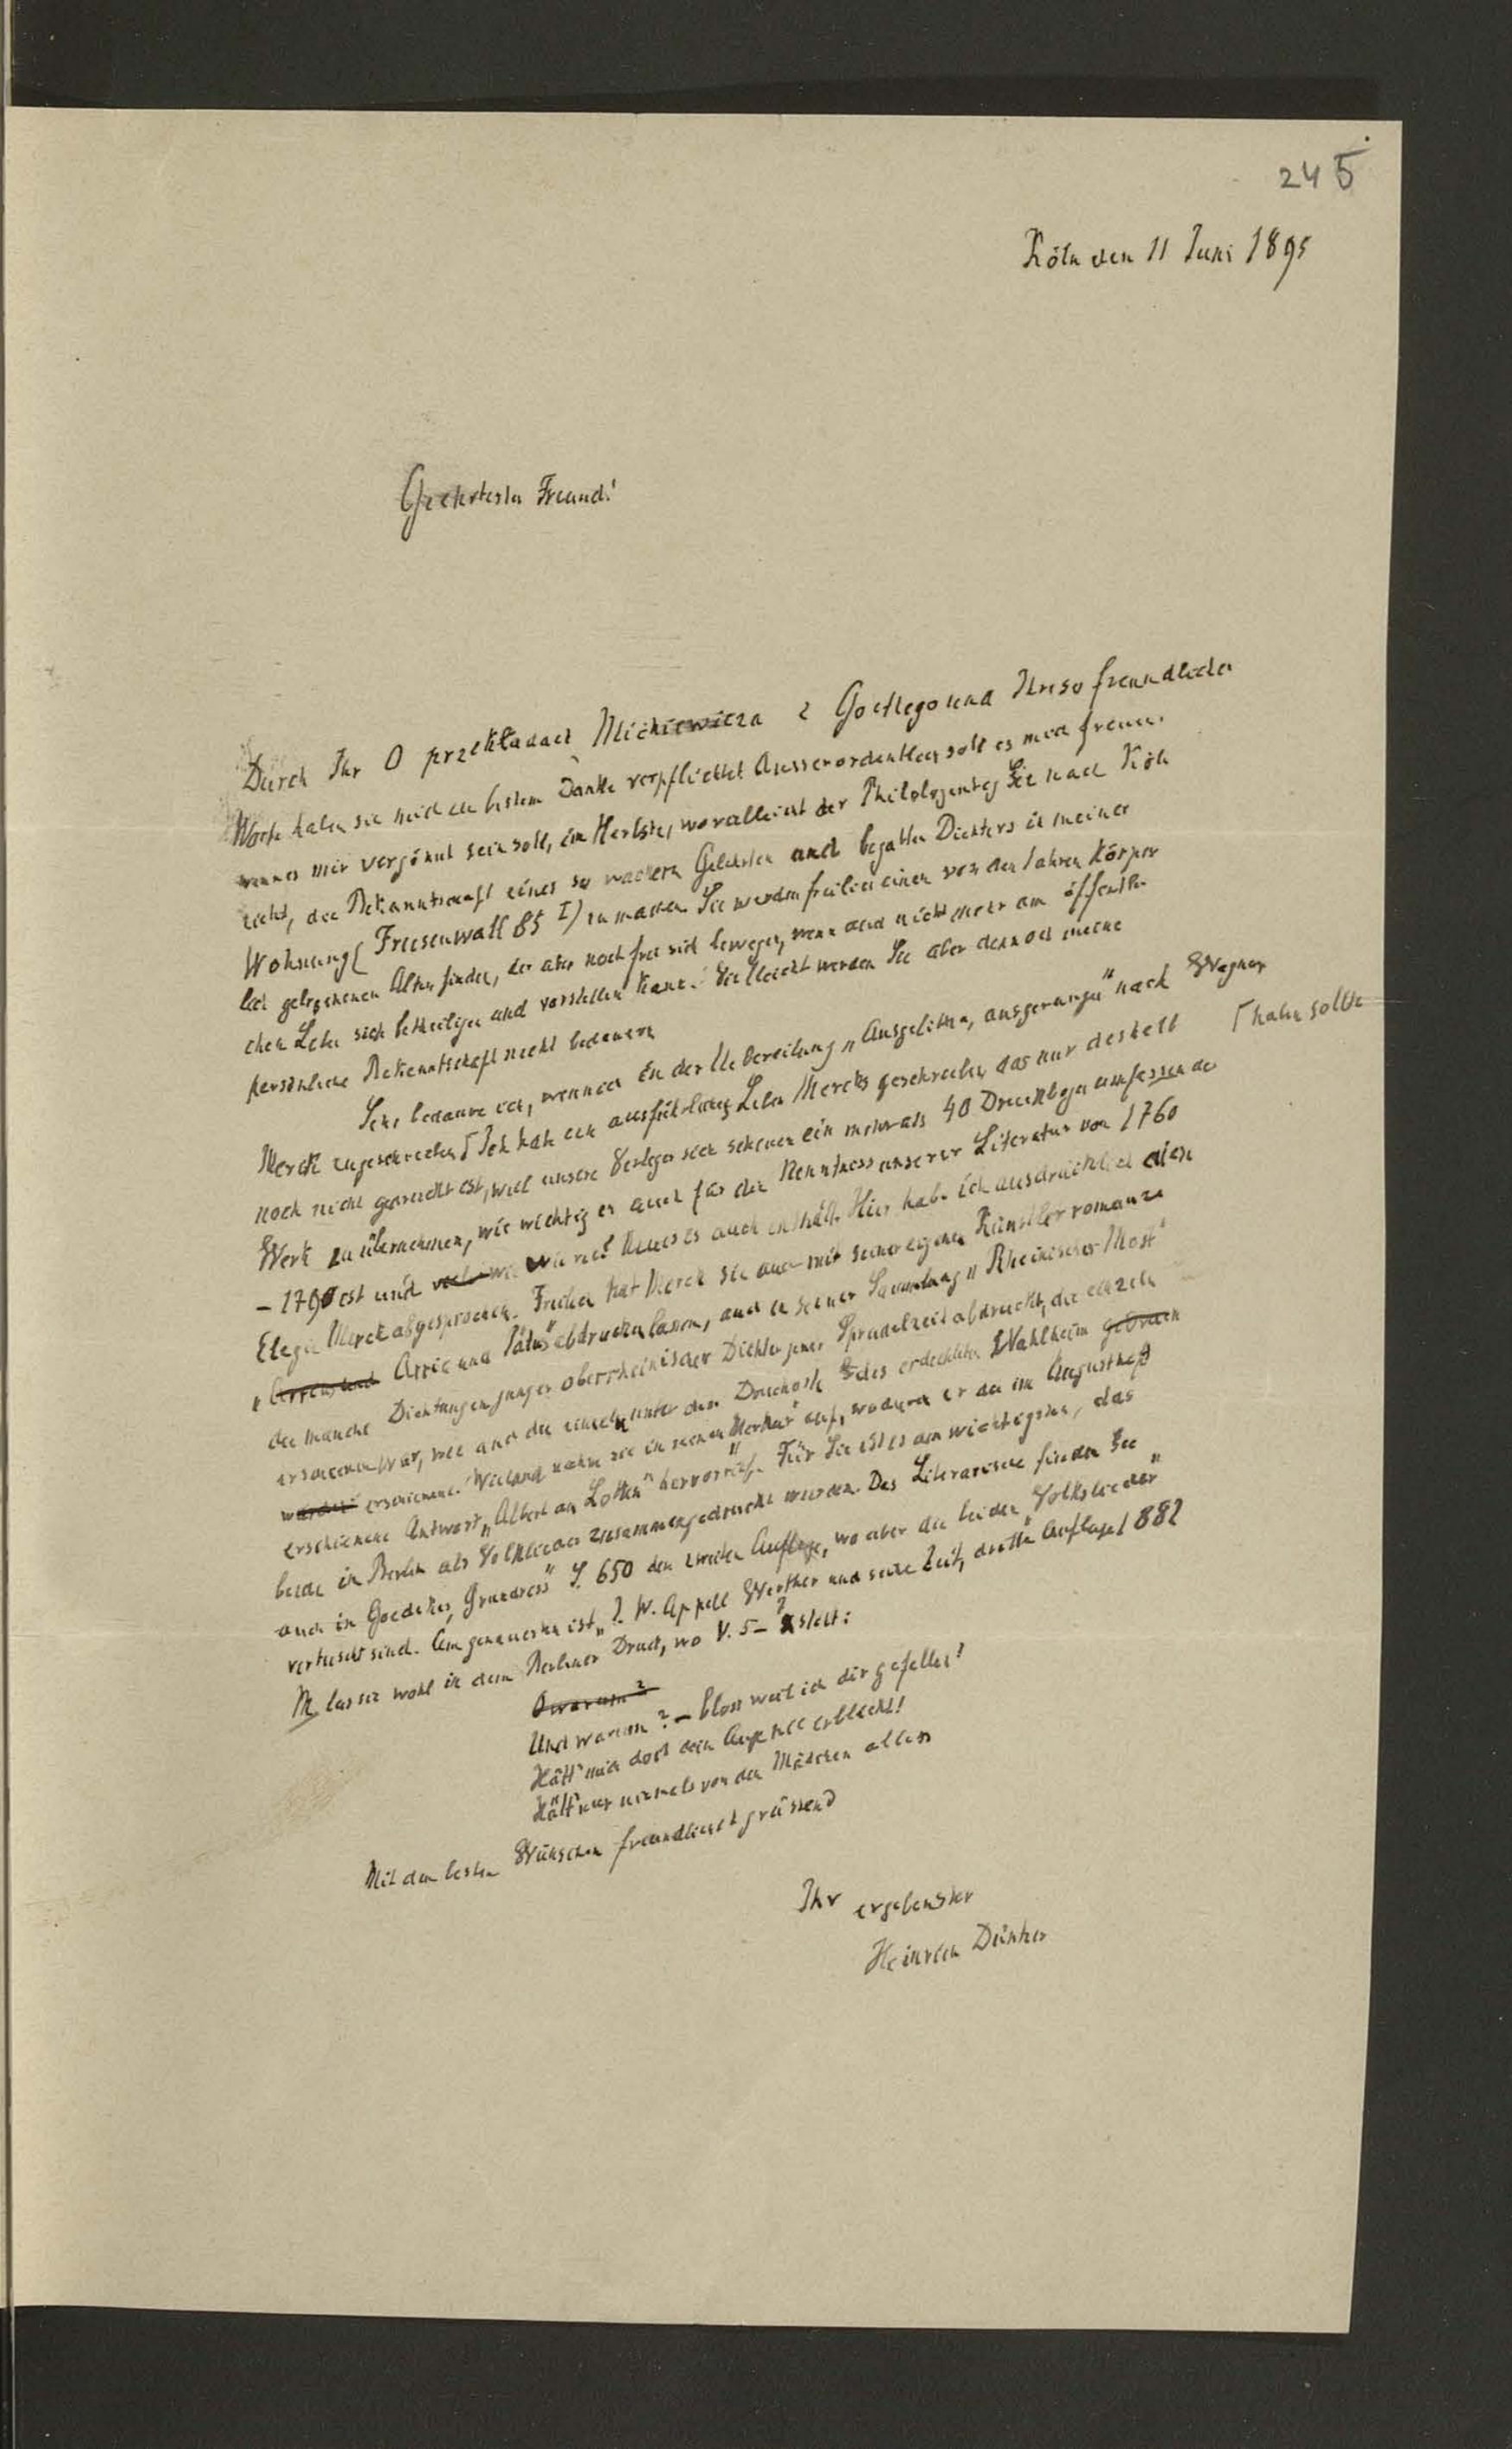 245
Köln den 11 Juni 1895
Geehrtester Freund!
Durch Ihr O przekładach Mickiewicza z Goethego und Ihre so freundlichen
Worte haben sie mich zu bestem Danke verpflichtet Ausserordentlich soll es mich freuen,
wenn es mir vergönnt sein soll, im Herbste, wo vielleicht der Philologentag Sie nach Köln
zieht, die Bekanntschaft eines so wackern Gelehrten und begabten Dichters in meiner
Wohnung (Friesenwall 85 I) zu machen Sie werden freilich einen von den Jahren körper
lich gebrochenen Alten finden, der aber noch frei sich bewegen, wenn auch nicht mehr am öffentli-
chen Leben sich betheiligen und vorstellen kann. Vielleicht werden Sie aber dennoch meine
persönliche Bekanntschaft nicht bedauern
Sehr bedaure ich, wenn ich in der Uebereilung „Ausgelitten, ausgerungen" nach Wagner
Merck zugeschrieben ⌈ Ich habe ein ausführliches Leben Mercks geschrieben, das nur deshalb ⌈haben sollte
noch nicht gedruckt ist, weil unsere Verleger sich scheuen ein mehr als 40 Druckbogen umfassendes
Werk zu übernehmen, wie wichtig es auch für die Kenntniss unserer Literatur von 1760
– 1790 ist und wie viel Neues es auch enthält. Hier habe ich ausdrücklich die
Elegie Merck abgesprochen. Freilich hat Merck sie auch mit seiner eigenen Künstlerromanze
„ Arria und Pätus" abdrucken lassen, auch in seiner Sammlung „Rheinischer Most"
die manche Dichtungen junger oberrheinischer Dichter jener Sprudelzeit abdruckt, die einzeln
erschienen war, wie auch die einzeln unter dem Druckorte des erdichteten Wahlheim gedruckt
worden erschienene. Wieland nahm sie in seinen „Merkur" auf, wodurch er die im Augustheft
erschienene Antwort „Albert an Lotten" hervorrief. Für Sie ist es am wichtigsten, das
beide in Berlin als Volkslieder zusammengedruckt wurden. Das Literarische finden Sie
auch in Goedekes „Grundriss" S. 650 der zweiten Auflage, wo aber die beiden „Volkslieder"
vertuscht sind. Am genauesten ist „J. W. Appell Werther und seine Zeit, dritte Auflage 1882
M. las sie wohl in dem Berliner Druck, wo V. 5–7 steht:
O warum?
Und warum? – bloss weil ich dir gefallen?
Hätt' mich doch dein Auge nie erblickt!
Hätt' nur niemals von den Mädchen allen
Mit den besten Wünschen freundlichst grüssend
Ihr ergebenster
Heinrich Düntzer